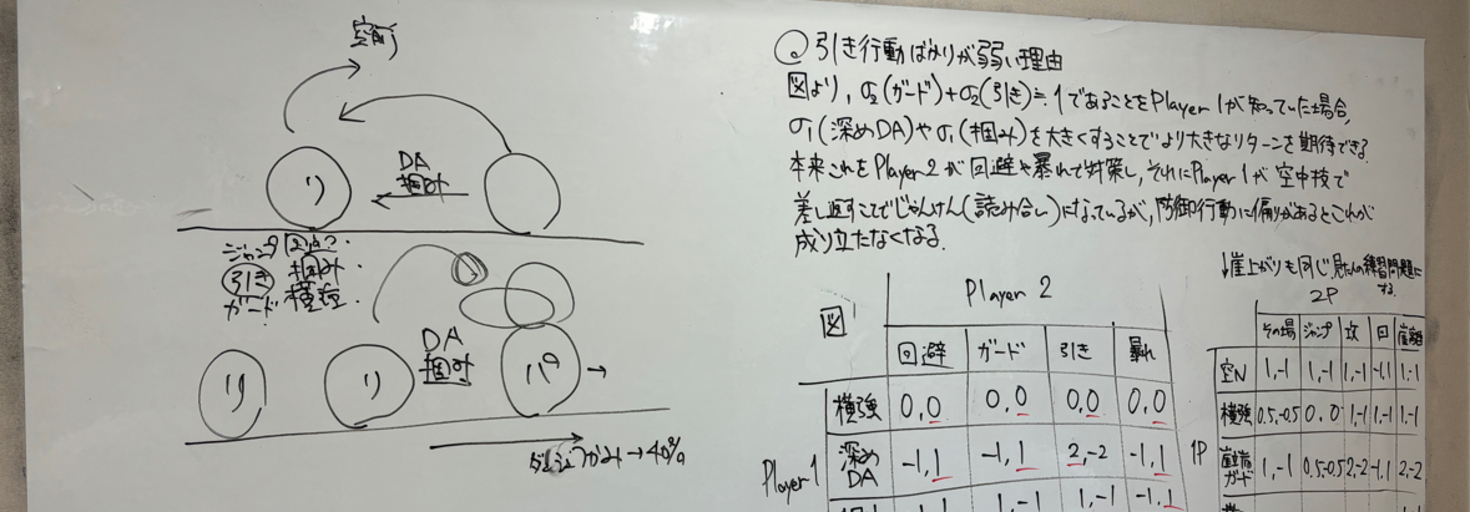 空前
DA
掴み
リ
ジャンプ 回避
引き 掴み
ガード 横強
DA
掴み
リ リ パ
ダッシュつかみ→40%
引き行動ばかりが弱い理由
図より, σ₂(ガード)+σ₂(引き)≒1であることをPlayer 1が知っていた場合,
σ₁(深めDA)やσ₁(掴み)を大きくすることでより大きなリターンを期待できる.
本来これをPlayer 2が回避や暴れで対策し, それにPlayer 1が空中技で
差し返すことでじゃんけん(読み合い)になっているが, 防御行動に偏りがあるとこれが
成り立たなくなる.
↓崖上がりも同じ. 見た人の練習問題に
する.
図
Player 2
回避 ガード 引き 暴れ
横強 0,0 0,0 0,0 0,0
Player 1
深め
DA -1,1 -1,1 2,-2 -1,1
1,-1 1,-1 -1,1
2P
その場 ジャンプ 攻 回 崖離
1P
空N 1,-1 1,-1 1,-1 -1,1 1,-1
横強 0.5,-0.5 0,0 1,-1 1,-1 1,-1
ガード 1,-1 0.5,-0.5 2,-2 -1,1 2,-2